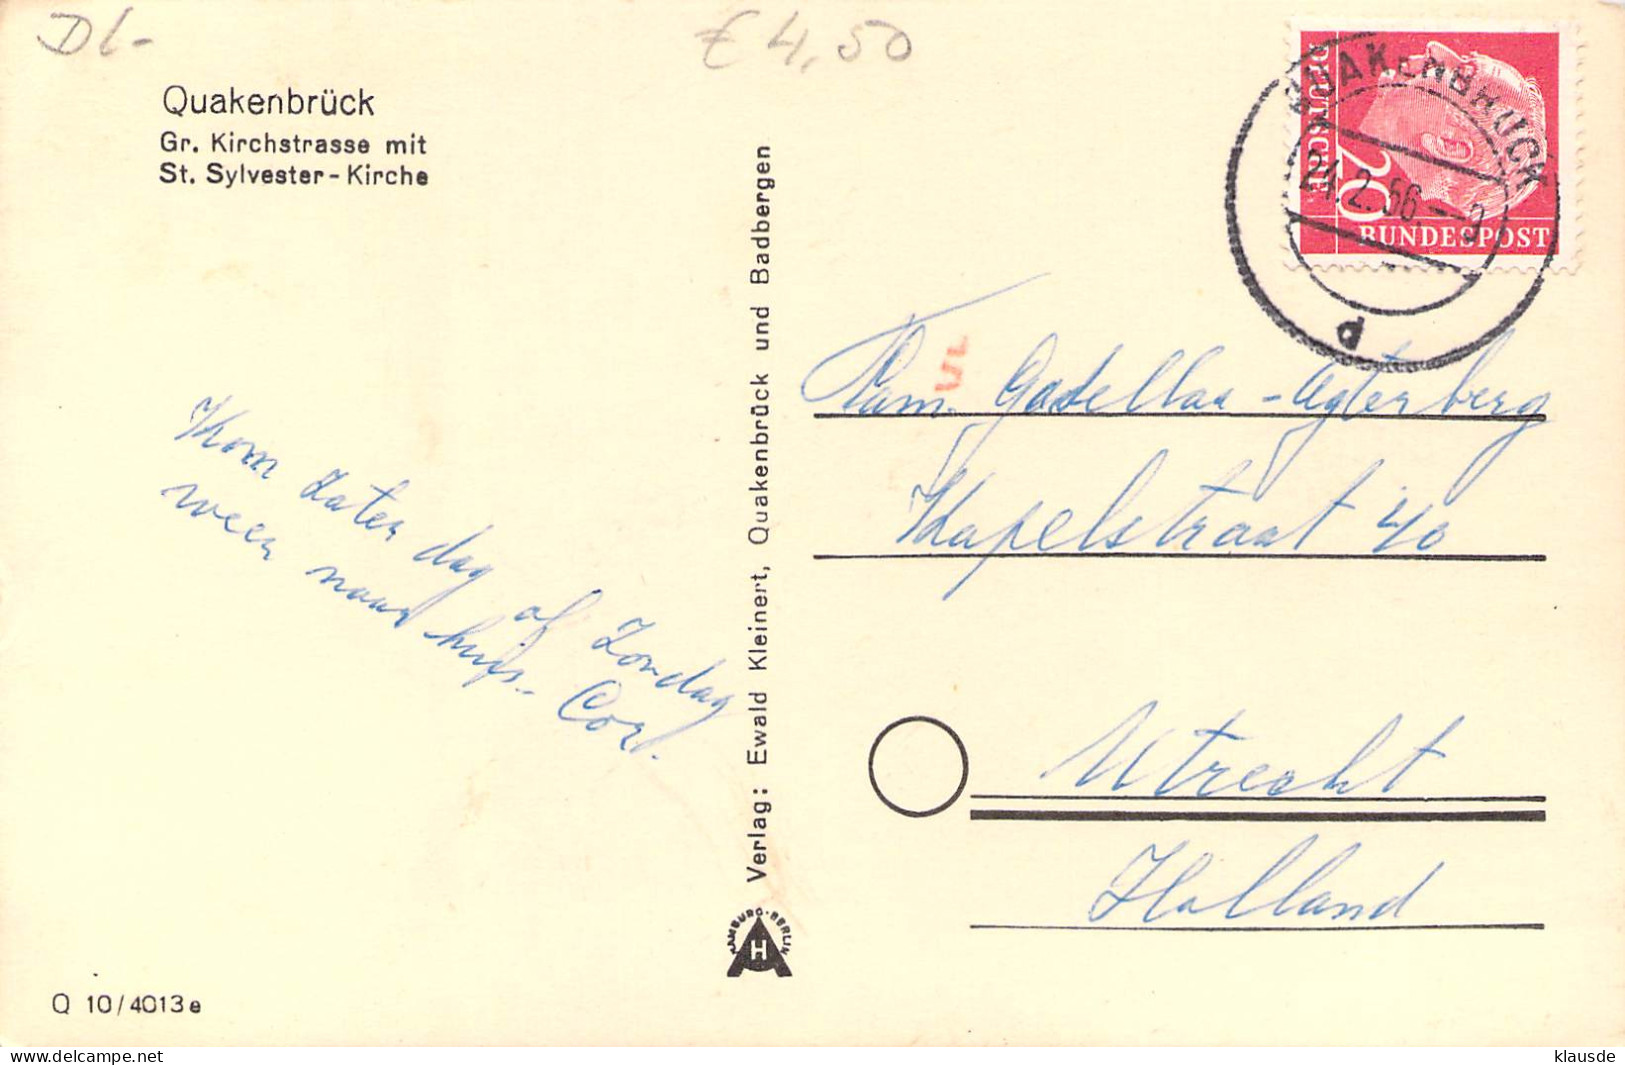 Dl-
€ 4,50
Quakenbrück
Gr. Kirchstrasse mit
St. Sylvester-Kirche
DEUTSCHE
20
BUNDESPOST
QUAKENBRÜCK
24.2.56
d
Kom Zaterdag of Zondag
weer naar huis. Cor.
Verlag: Ewald Kleinert, Quakenbrück und Badbergen
Fam. Gadellaa-Agterberg
Kapelstraat 40
Utrecht
Holland
HAMBURG-BERLIN
H
Q 10/4013e
www.delcampe.net
klausde